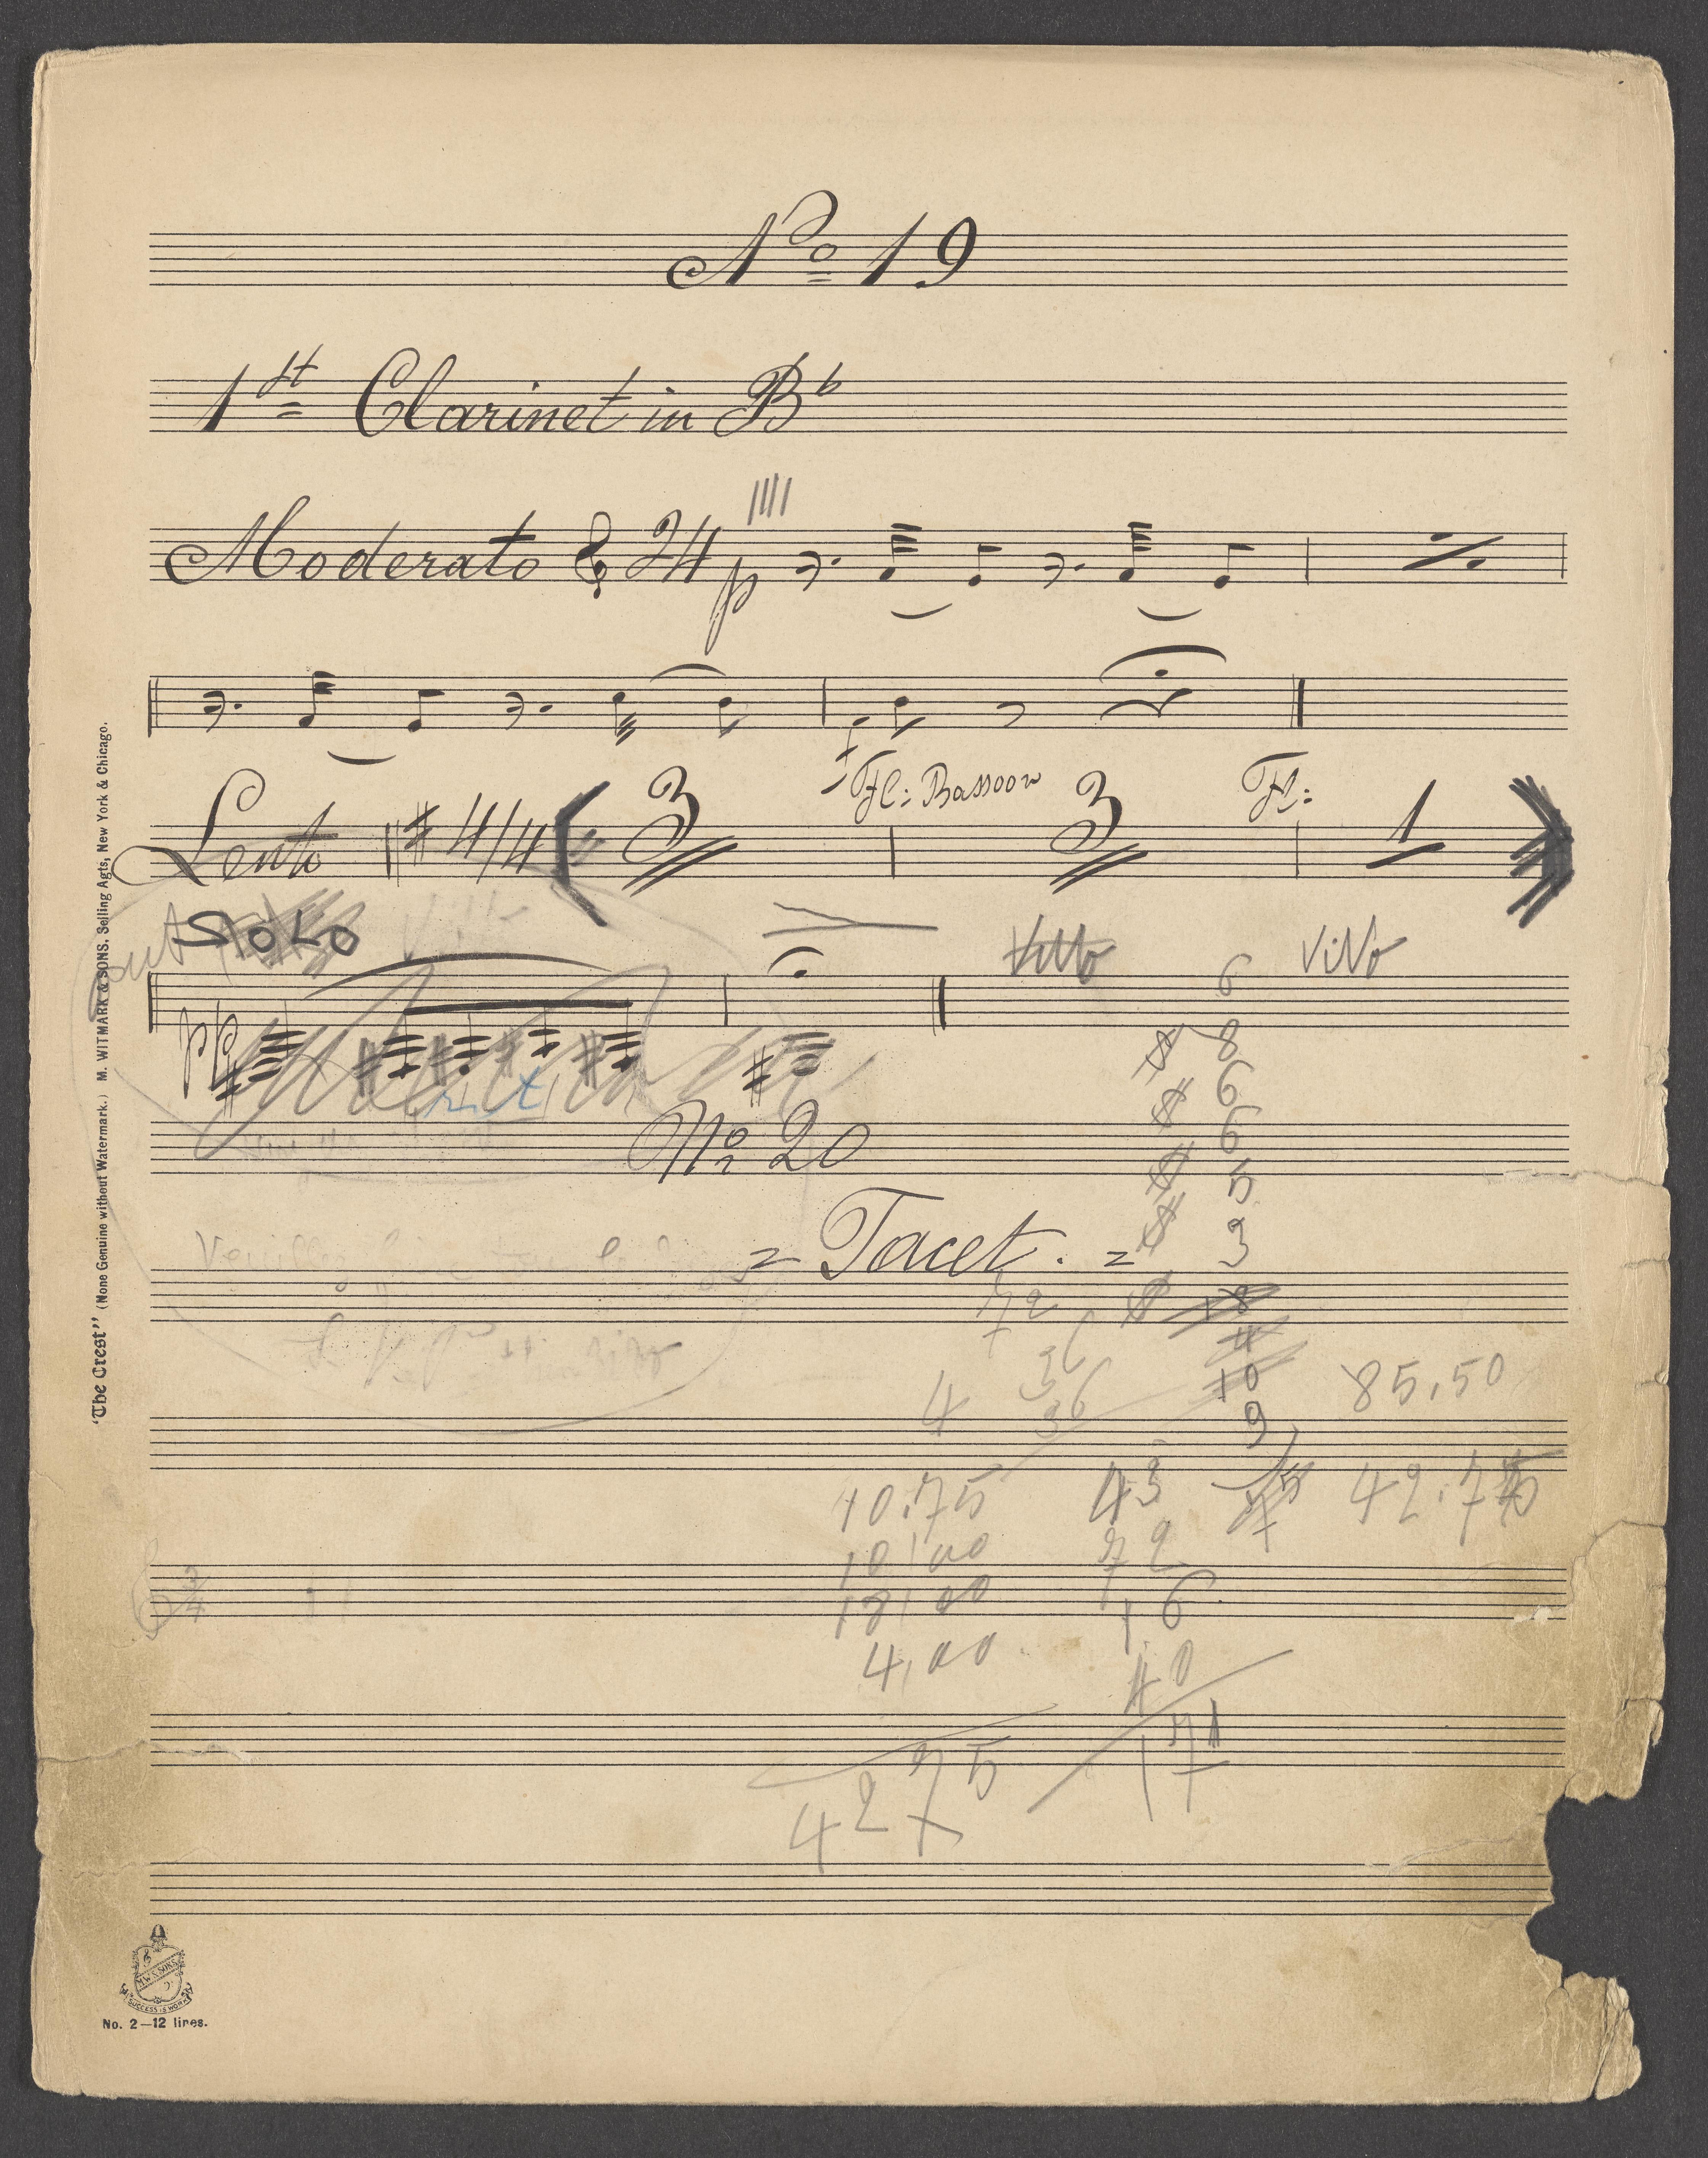 No 19
1st Clarinet in Bb
Moderato 24 p
Fl: Bassoon Fl:
Lento # 4/4 3 3 1
out SOLO Vitto ViVo
pp
6
8
6
6
No 20
5
3
= Tacet. =
Veuillez
72 18
4
36 10 85,50
4 36 9
10.75 43 75 42.75
10,00 72
18,00 16
4,00 40
171
4275
3/4
"The Crest" (None Genuine without Watermark.) M. WITMARK & SONS, Selling Agts, New York & Chicago.
M.W. & SONS
SUCCESS IS WORK
No. 2—12 lines.